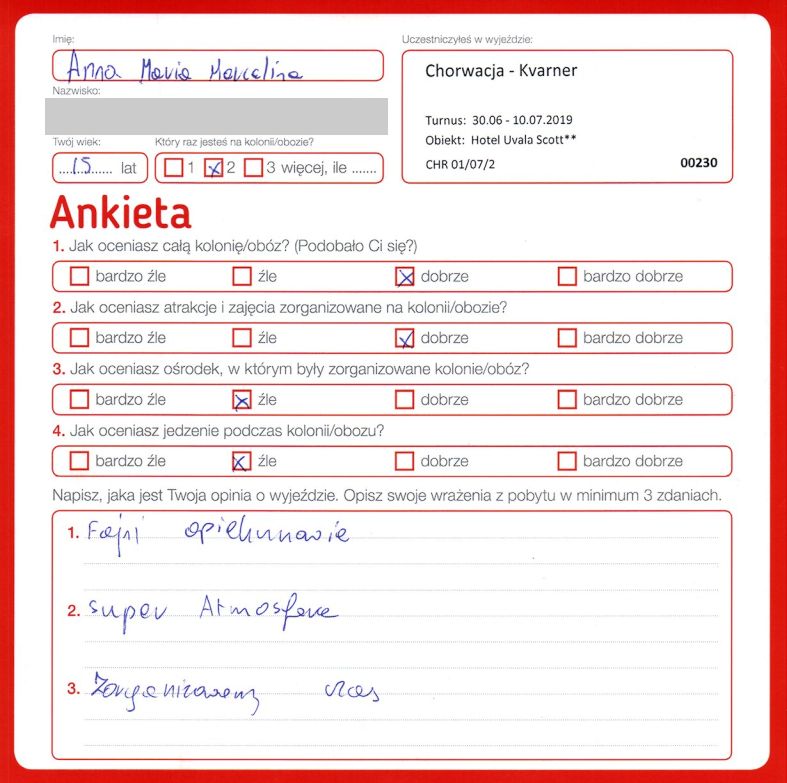 Imię:
Anna Maria Marcelina
Nazwisko:
Twój wiek:
15 lat
Który raz jesteś na kolonii/obozie?
1 2 3 więcej, ile .......
Uczestniczyłeś w wyjeździe:
Chorwacja - Kvarner
Turnus: 30.06 - 10.07.2019
Obiekt: Hotel Uvala Scott**
CHR 01/07/2 00230
Ankieta
1. Jak oceniasz całą kolonię/obóz? (Podobało Ci się?)
bardzo źle źle dobrze bardzo dobrze
2. Jak oceniasz atrakcje i zajęcia zorganizowane na kolonii/obozie?
bardzo źle źle dobrze bardzo dobrze
3. Jak oceniasz ośrodek, w którym były zorganizowane kolonie/obóz?
bardzo źle źle dobrze bardzo dobrze
4. Jak oceniasz jedzenie podczas kolonii/obozu?
bardzo źle źle dobrze bardzo dobrze
Napisz, jaka jest Twoja opinia o wyjeździe. Opisz swoje wrażenia z pobytu w minimum 3 zdaniach.
1. Fajni opiekunowie
2. super Atmosfera
3. Zorganizowany czas